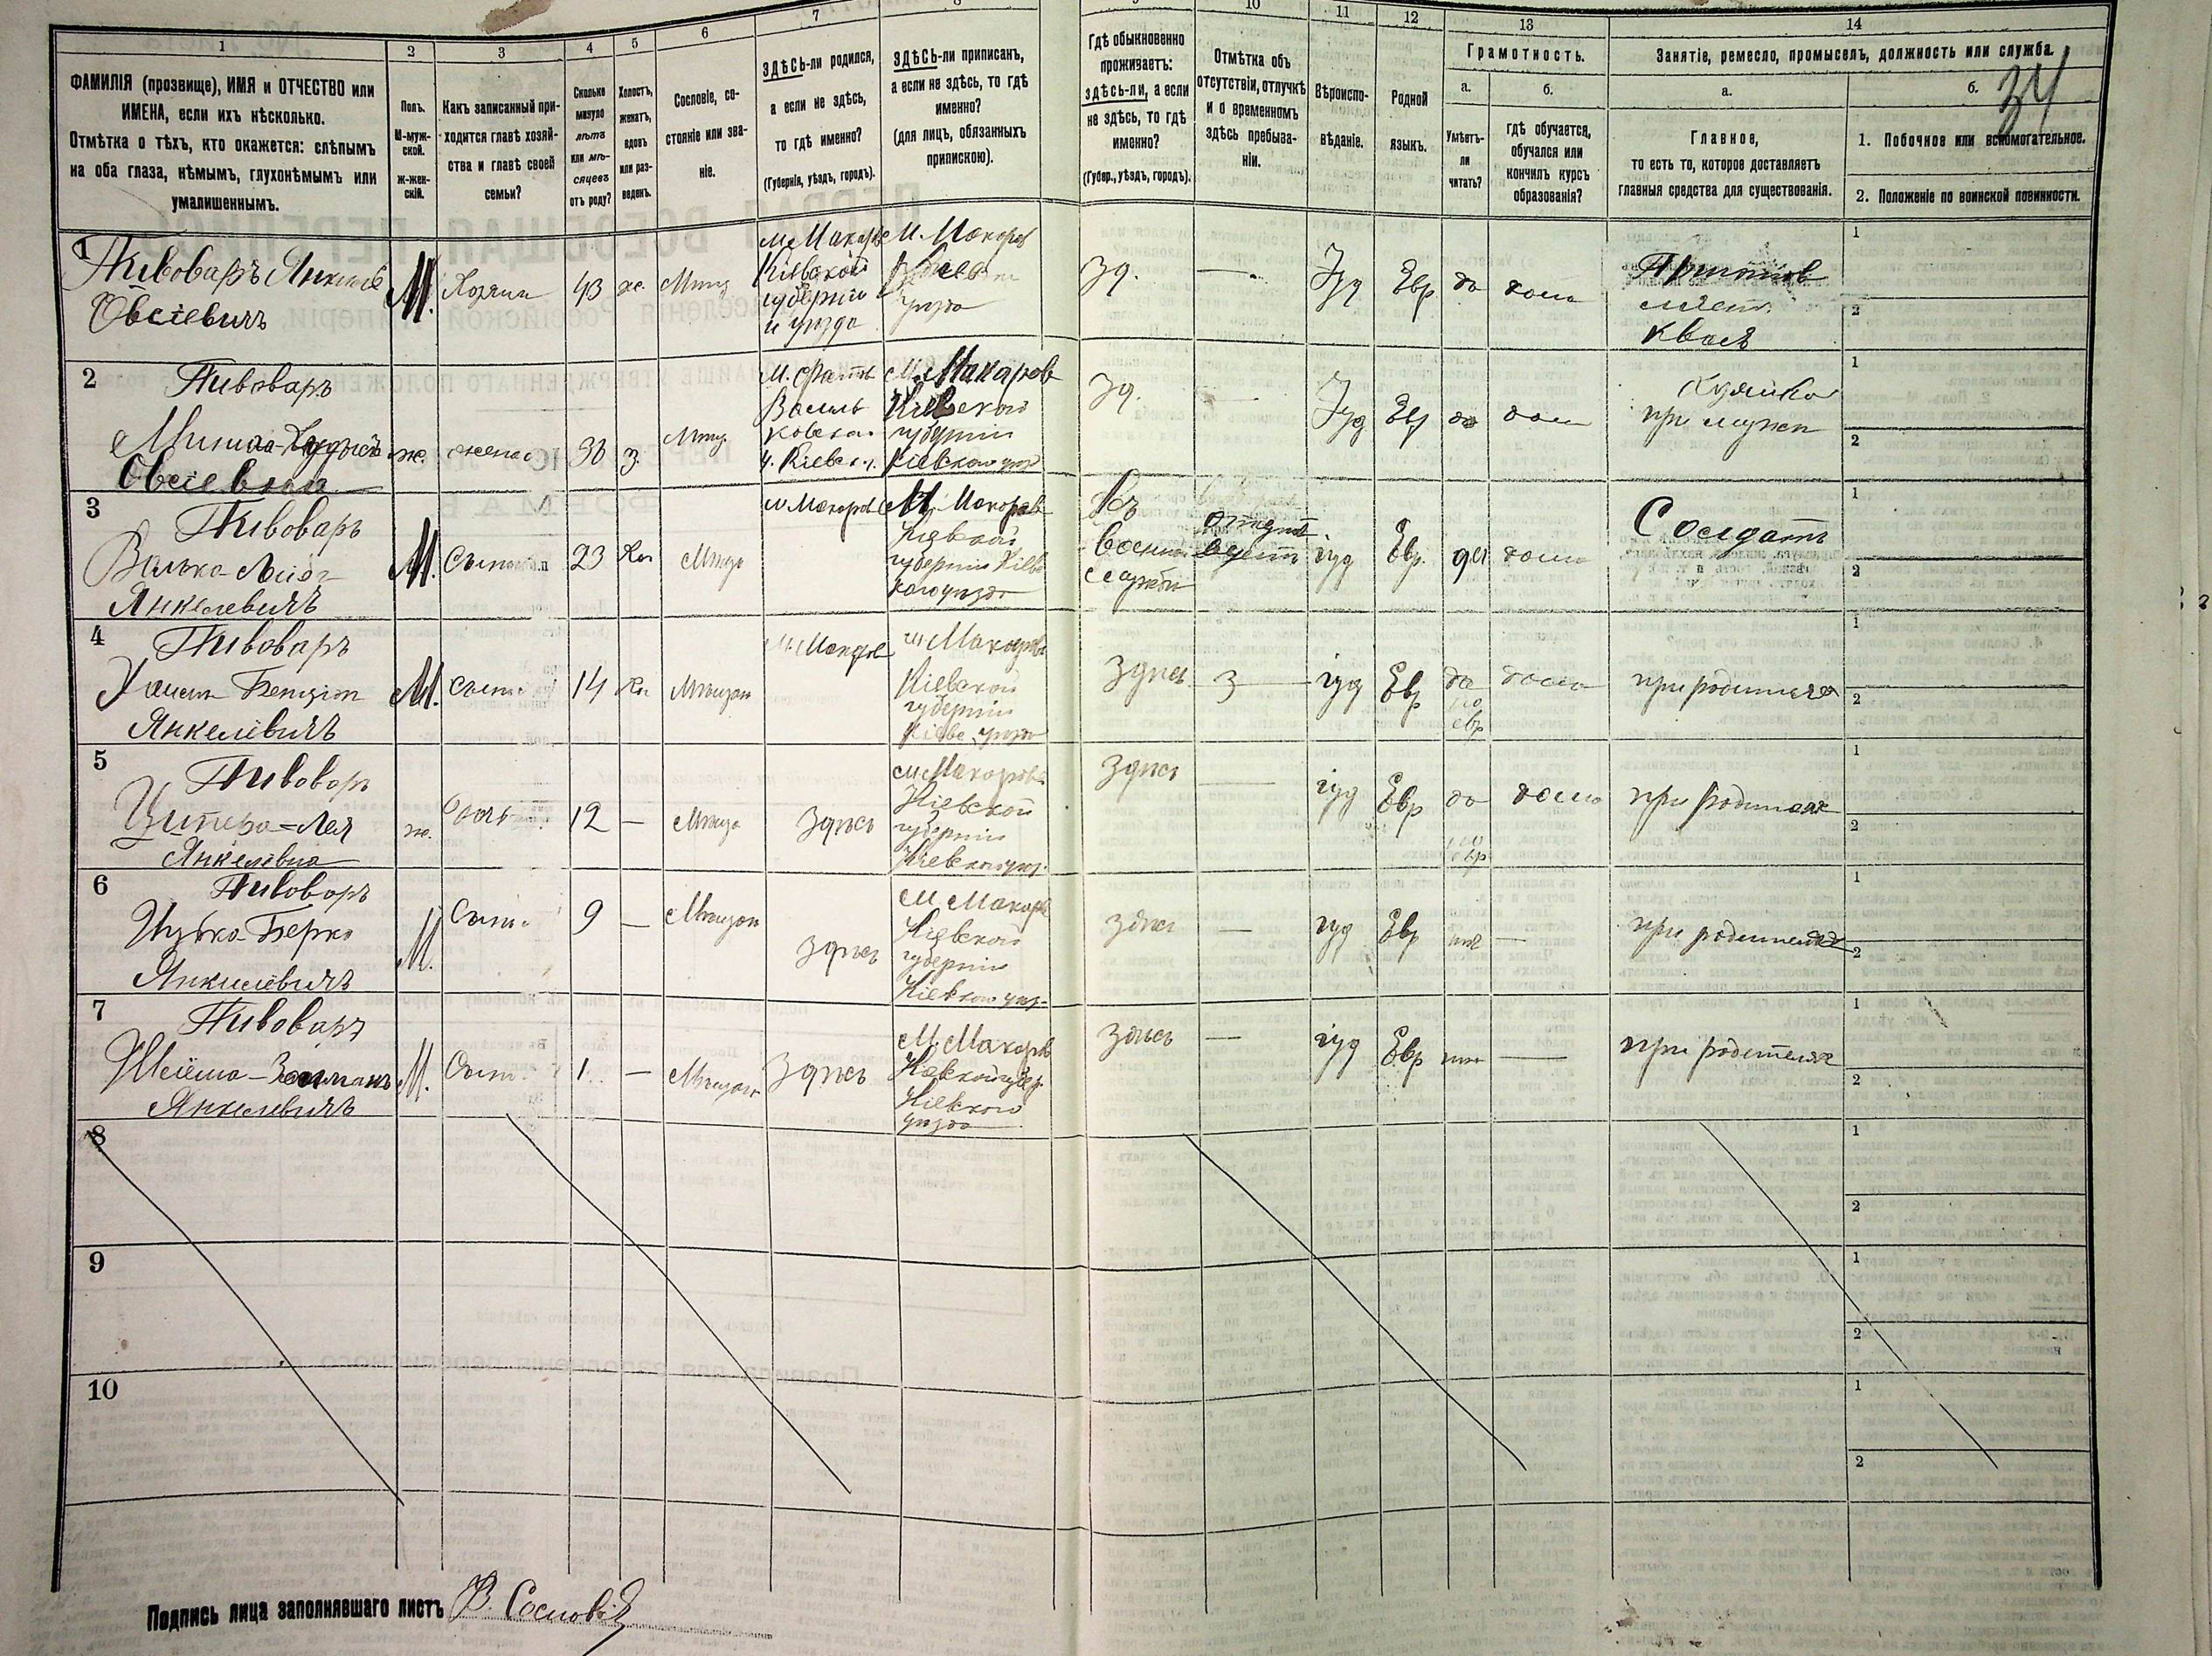 7
8
10
11
12
13
14
1
2
3
4
5
6
ФАМИЛІЯ (прозвище), ИМЯ и ОТЧЕСТВО или
ИМЕНА, если ихъ нѣсколько.
Отмѣтка о тѣхъ, кто окажется: слѣпымъ
на оба глаза, нѣмымъ, глухонѣмымъ или
умалишеннымъ.
Полъ.
М-муж-
ской.
Ж-жен-
скій.
Какъ записанный при-
ходится главѣ хозяй-
ства и главѣ своей
семьи?
Сколько
минуло
лѣтъ
или мѣ-
сяцевъ
отъ роду?
Холостъ,
женатъ,
вдовъ
или раз-
веденъ.
Сословіе, со-
стояніе или зва-
ніе.
ЗДѢСЬ-ли родился,
а если не здѣсь,
то гдѣ именно?
(Губернія, уѣздъ, городъ).
ЗДѢСЬ-ли приписанъ,
а если не здѣсь, то гдѣ
именно?
(для лицъ, обязанныхъ
припискою).
Гдѣ обыкновенно
проживаетъ:
здѣсь-ли, а если
не здѣсь, то гдѣ
именно?
(Губер., уѣздъ, городъ).
Отмѣтка объ
отсутствіи, отлучкѣ
и о временномъ
здѣсь пребыва-
ніи.
Вѣроиспо-
вѣданіе.
Родной
языкъ.
Грамотность.
а.
Умѣетъ-
ли
читать?
б.
гдѣ обучается,
обучался или
кончилъ курсъ
образованія?
Занятіе, ремесло, промыселъ, должность или служба.
а.
Главное,
то есть то, которое доставляетъ
главныя средства для существованія.
б.
34
1. Побочное или вспомогательное.
2. Положеніе по воинской повинности.
1
Пивоваръ Янкель
Овсіевичъ
М.
Хозяин
43
ж.
Мѣщ
м. Макаров
Кіевской
губерніи
и уѣзда
М. Макаров
уѣзда
Зд.
—
Іуд
Евр
да
дома
Квасъ
1
2
2
Пивоваръ
Овсіевна
ж.
жена
З.
Мѣщ
Василь
ковска
у. Кіевск. г.
м. Макаров
Кіевской
губерніи
Кіевского уѣз
Зд.
—
Іуд
Евр
да
дома
Хозяйка
при мужѣ
1
2
3
Пивоваръ
Янкелевичъ
М.
Сынъ
23
Хол
Мѣщ
м. Макаров
М. Макаров
Кіевской
губерніи Кіев
каго уѣзда
Въ
военной
службѣ
іуд
Евр.
да
дома
Солдатъ
1
2
4
Пивоваръ
Бенціон
Янкелевичъ
М.
Сынъ
14
Хол
Мѣщан
м. Макаров
м. Макаров
Кіевской
губерніи
Кіевс. уѣзда
Здѣсь
З —
іуд
Евр
да
по
евр
дома
при родителях
1
2
5
Пивовар
Ципера-Лея
Янкелевна
ж.
Дочь
12
—
Мѣща
Здѣсь
м. Макаров
Кіевской
губерніи
Кіевского уѣз.
Здѣсь
—
іуд
Евр
да
по
евр
дома
при родителях
1
2
6
Пивоваръ
Ицько-Берко
Янкелевичъ
М.
Сынъ
9
—
Мѣщан
Здѣсь
м. Макаров
Кіевской
губерніи
Кіевского уѣз-
Здѣсь
—
іуд
Евр
нѣт
—
при родителях
1
2
7
Пивоваръ
Янкелевичъ
М.
Сынъ
1
—
Мѣщан
Здѣсь
М. Макаров
Кіевской губер.
Кіевского
уѣзда
Здѣсь
—
іуд
Евр
нѣт
—
при родителях
1
2
8
1
2
9
1
2
10
1
2
Подпись лица заполнявшаго листъ